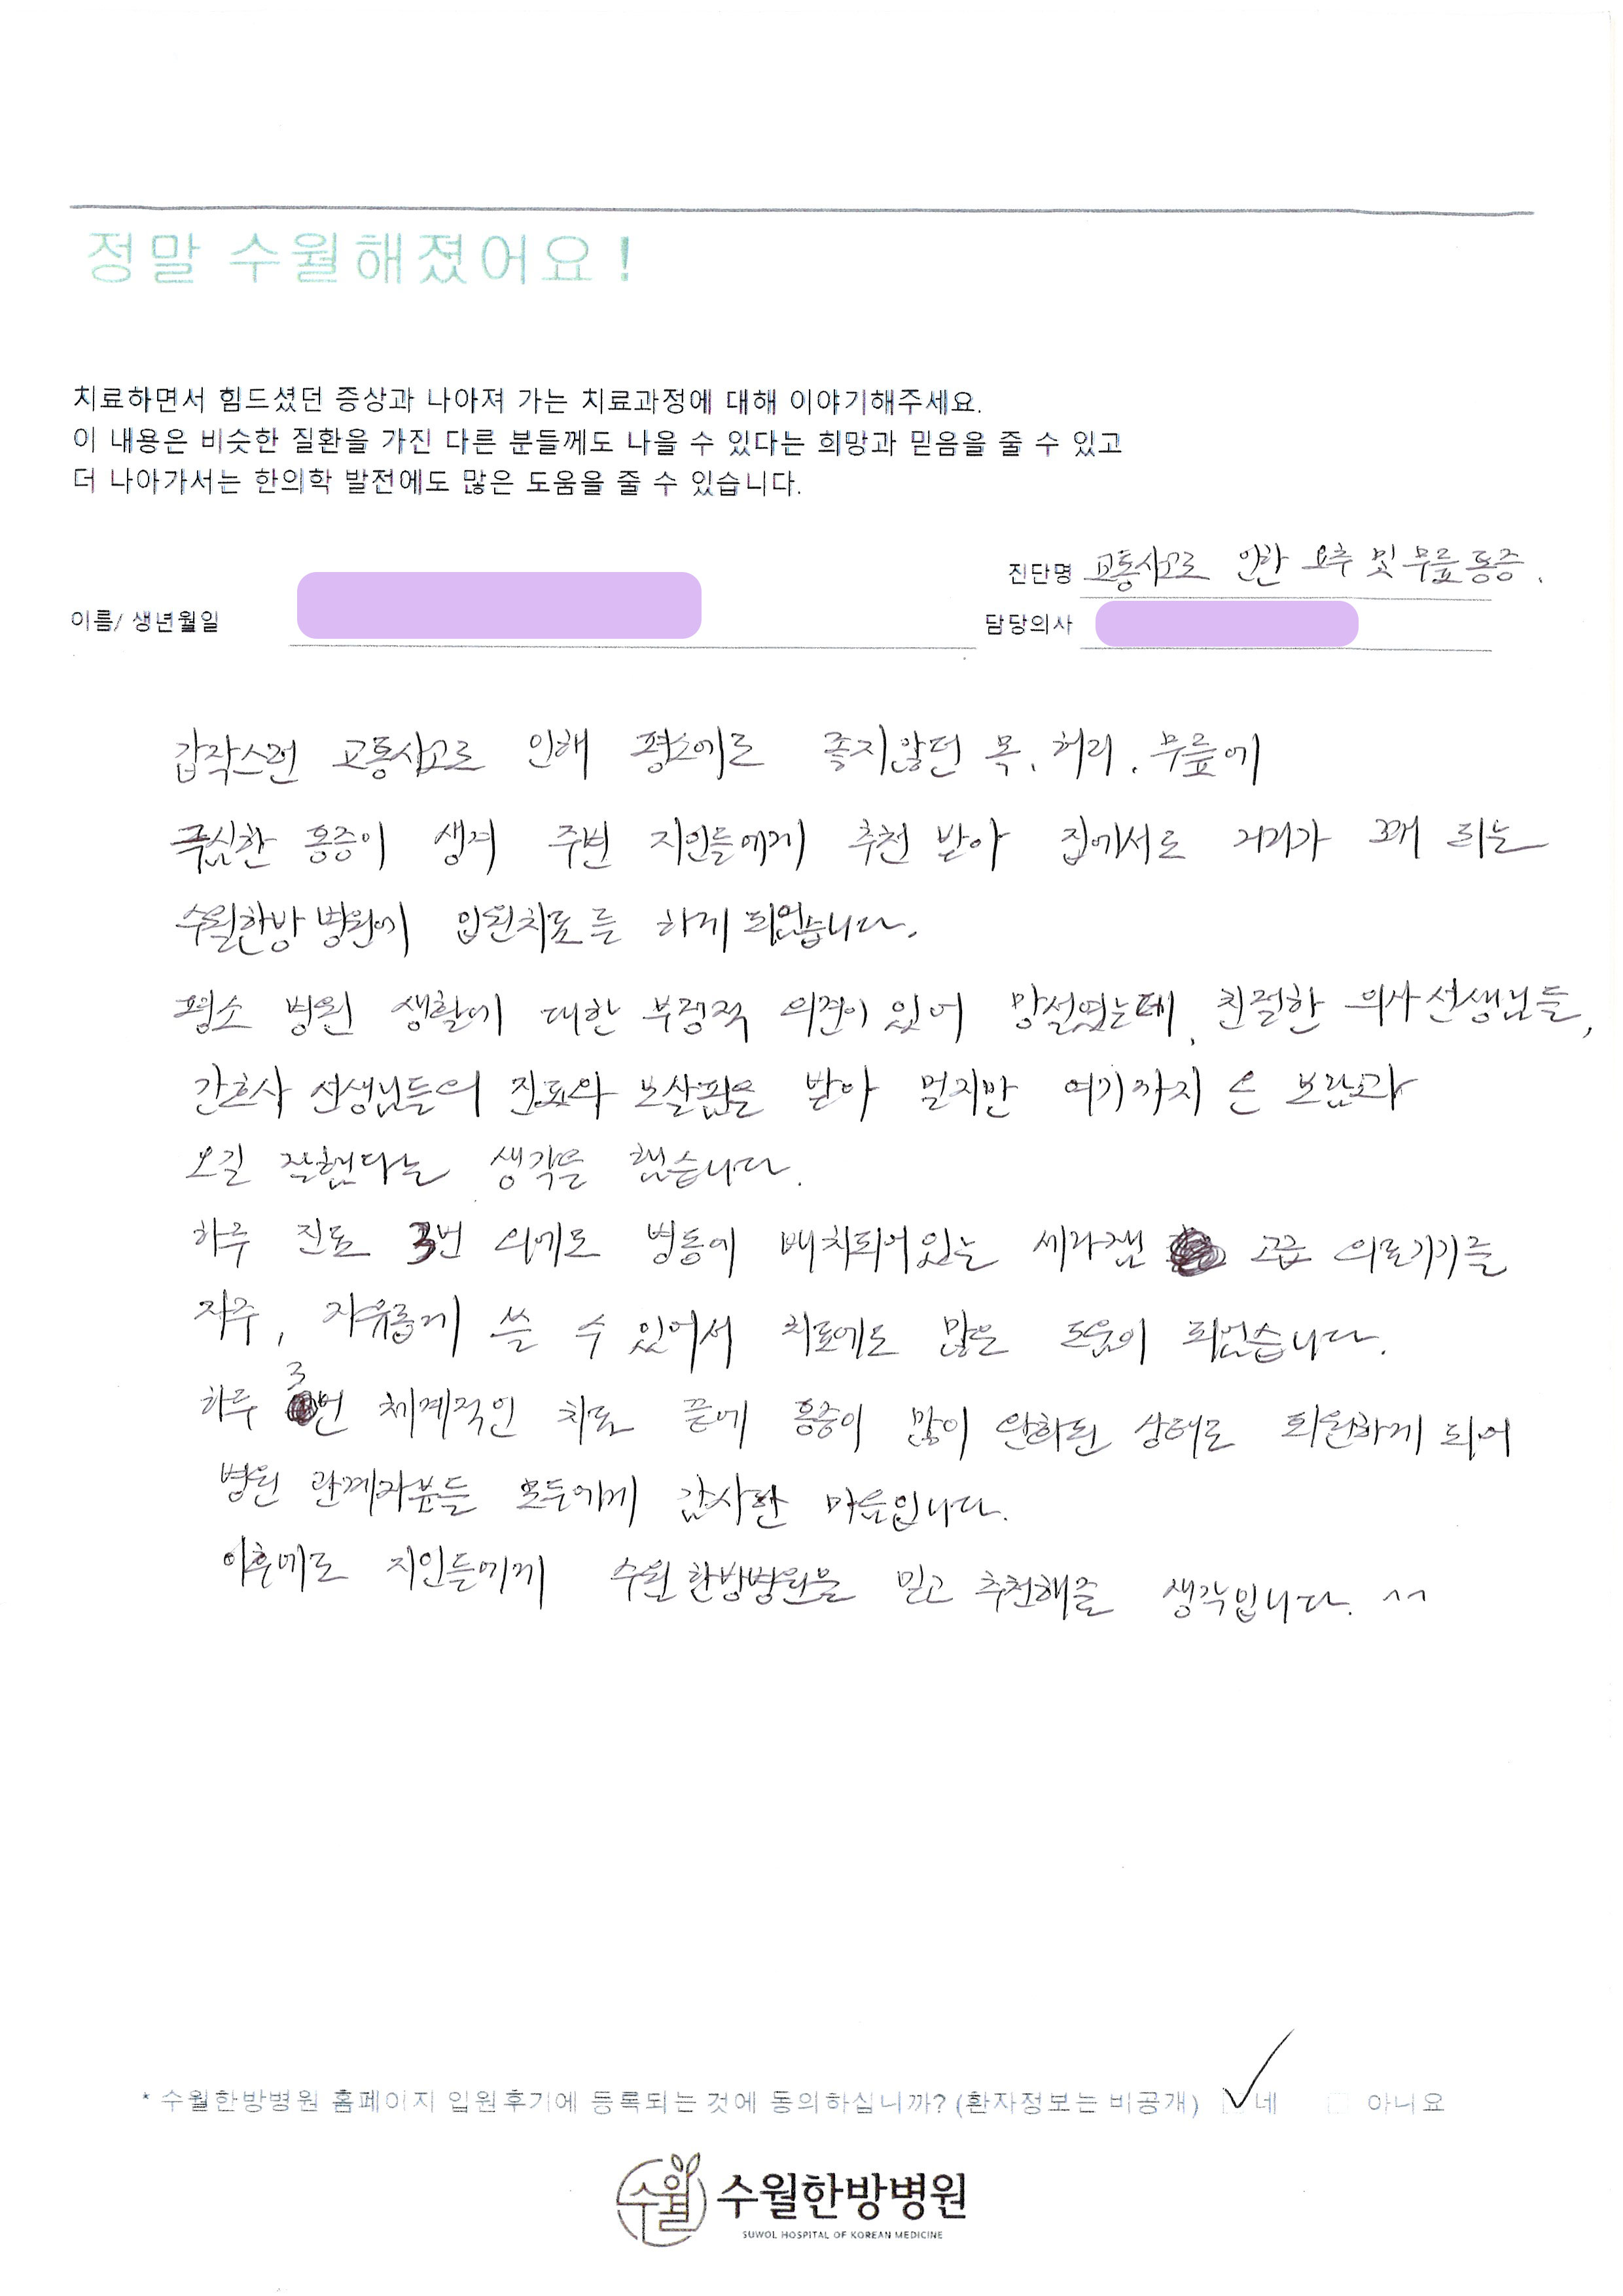 정말 수월해졌어요!
치료하면서 힘드셨던 증상과 나아져 가는 치료과정에 대해 이야기해주세요.
이 내용은 비슷한 질환을 가진 다른 분들께도 나을 수 있다는 희망과 믿음을 줄 수 있고
더 나아가서는 한의학 발전에도 많은 도움을 줄 수 있습니다.
진단명 교통사고로 인한 요추 및 무릎통증.
이름/ 생년월일
담당의사
갑작스런 교통사고로 인해 평소에도 좋지않던 목, 허리, 무릎에
극심한 통증이 생겨 주변 지인들에게 추천 받아 집에서도 거리가 꽤 되는
수월한방 병원에 입원치료를 하게 되었습니다.
평소 병원 생활에 대한 부정적 의견이 있어 망설였는데, 친절한 의사선생님들,
간호사 선생님들의 진료와 보살핌을 받아 멀지만 여기까지 온 보람과
오길 잘했다는 생각을 했습니다.
하루 진료 3번 외에도 병동에 배치되어있는 세라젬 고급 의료기기를
자주, 자유롭게 쓸 수 있어서 치료에도 많은 도움이 되었습니다.
하루 3번 체계적인 치료 끝에 통증이 많이 완화된 상태로 퇴원하게 되어
병원 관계자분들 모두에게 감사한 마음입니다.
이후에도 지인들에게 수월한방병원을 믿고 추천해줄 생각입니다. ^^
* 수월한방병원 홈페이지 입원후기에 등록되는 것에 동의하십니까? (환자정보는 비공개) ✓네 □ 아니요
수월 수월한방병원
SUWOL HOSPITAL OF KOREAN MEDICINE